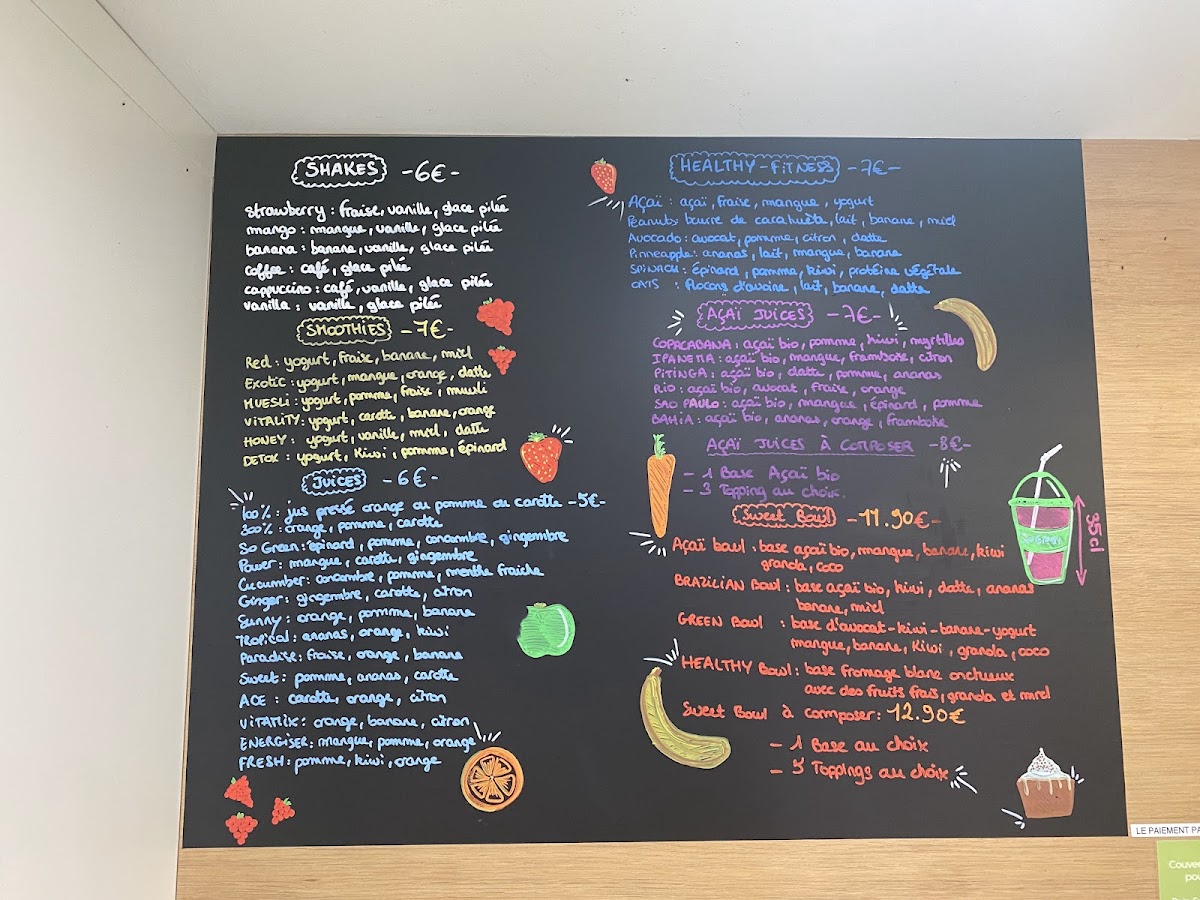 SHAKES -6€-
strawberry : fraise, vanille, glace pilée
mango : mangue, vanille, glace pilée
banana : banane, vanille, glace pilée
coffee : café, glace pilé
cappuccino : café, vanille, glace pilée
vanilla : vanille, glace pilée
SMOOTHIES -7€-
Red : yogurt, fraise, banane, miel
Exotic : yogurt, mangue, orange, datte
MUESLi : yogurt, pomme, fraise, muesli
ViTALiTY : yogurt, carotte, banane, orange
HONEY : yogurt, vanille, miel, datte
DETOX : yogurt, kiwi, pomme, épinard
JUiCES -6€-
100% : jus pressé orange ou pomme ou carotte -5€-
300% : orange, pomme, carotte
So Green : épinard, pomme, concombre, gingembre
Power : mangue, carotte, gingembre
Cucumber : concombre, pomme, menthe fraiche
Ginger : gingembre, carotte, citron
Sunny : orange, pomme, banane
TROPiCal : ananas, orange, kiwi
Paradise : fraise, orange, banane
Sweet : pomme, ananas, carotte
ACE : carotte, orange, citron
ViTAMiX : orange, banane, citron
ENERGiSER : mangue, pomme, orange
FRESH : pomme, kiwi, orange
HEALTHY-FiTNESS -7€-
Açaï : açaï, fraise, mangue, yogurt
Peanuts beurre de cacahuèta, lait, banane, miel
Avocado : avocat, pomme, citron, datte
Pinneapple : ananas, lait, mangue, banane
SPiNACH : épinard, pomme, kiwi, protéine végétale
OATS : flocons d'avoine, lait, banane, datte
AÇAÏ JUiCES -7€-
COPACABANA : açaï bio, pomme, kiwi, myrtilles
IPANEMA : açaï bio, mangue, framboise, citron
PiTiNGA : açaï bio, datte, pomme, ananas
Rio : açaï bio, avocat, fraise, orange
SAO PAULO : açaï bio, mangue, épinard, pomme
BAHiA : açaï bio, ananas, orange, framboise
AÇAÏ JUiCES À COMPOSER -8€-
- 1 Base Açaï bio
- 3 Topping au choix.
Sweet Bowl -11.90€-
Açaï bowl : base açaï bio, mangue, banane, kiwi
granola, coco
BRAZILIAN Bowl : base açaï bio, kiwi, datte, ananas
banane, miel
GREEN Bowl : base d'avocat-kiwi-banane-yogurt
mangue, banane, kiwi, granola, coco
HEALTHY Bowl : base fromage blanc onctueux
avec des fruits frais, granola et miel
Sweet Bowl à composer : 12.90€
- 1 Base au choix
- 5 Toppings au choix
35cl
LE PAIEMENT PA
Couve
pou